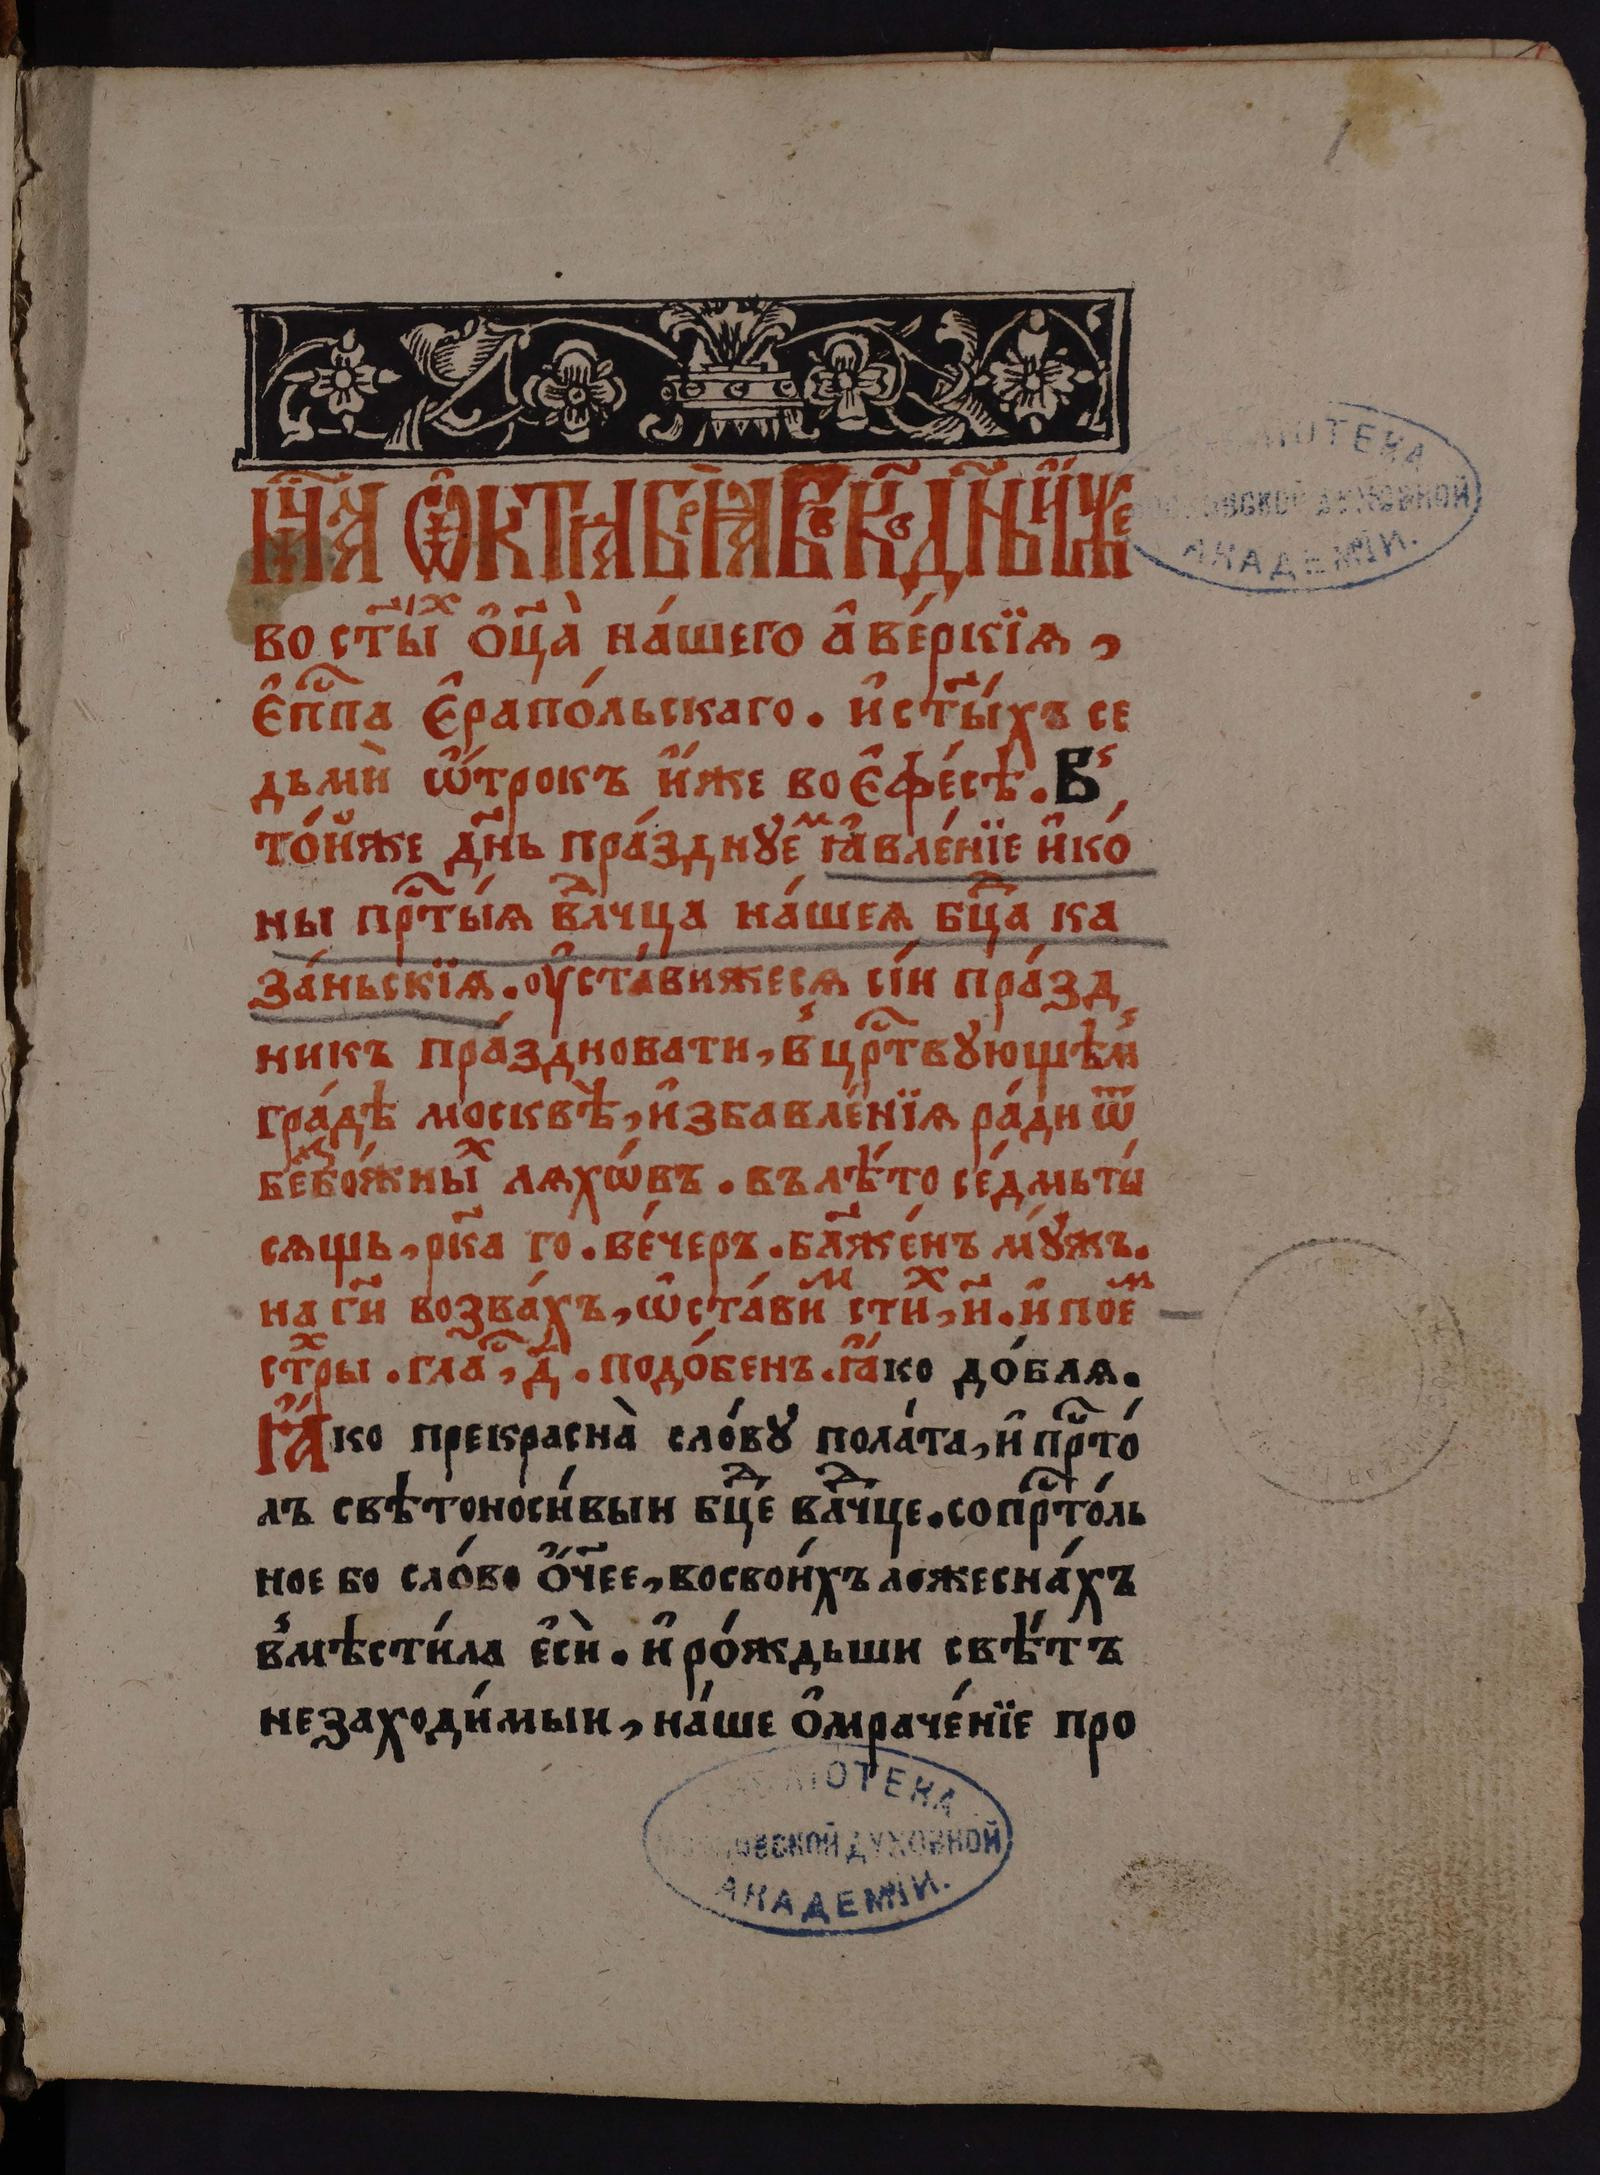 мц҃а ѻ҆ктѧбрїѧ в҃ к҃в дн҃ь и҆́же
во ст҃ы́х ѻ҆ц҃а̀ на́шего а҆ве́ркїѧ,
є҆пп҃а є҆рапо́льскаго. и҆ ст҃ы́хъ се
дьмѝ ѿтрокъ и҆́же во є҆фе́сѣ. В
то́йже дн҃ь пра́зднꙋе́м ꙗ҆вле́нїе и҆ко́
ны пр҃ты́ѧ влⷣчца на́шеѧ бцⷣа ка
за́ньскїѧ. оу҆ста́вижесѧ сі́и пра́зд
никъ пра́здновати, в црⷭ҇твꙋющѣм
гра́дѣ москвѣ̀, и҆збавле́нїѧ ра́ди ѿ
безбо́жных лѧхѡ́въ. въ лѣ́то се́дмьты
сѧщь, рк҃а го. ве́черъ. бл҃же́нъ мꙋ́жъ.
на гд҃и возва́хъ, ѡ҆ста́вим стих, и҃. и҆ пое́м
стхры. глаⷭ҇, д҃. подо́бенъ. ꙗ҆́ко до́блѧ.
Ꙗ҆́ко прекраснà сло́вꙋ пола́та, и҆ прⷭ҇то́
лъ свѣтоноси́выи бцⷣе влⷣчце. сопрⷭ҇то́ль
ное бо сло́во ѻ҆́ч҃ее, во свои́хъ ложесна́хъ
вмѣсти́ла є҆сѝ. и҆ ро́ждьши свѣ́тъ
незаходи́мыи, на́ше ѻ҆мраче́нїе про
БИБЛІОТЕКА
МОСКОВСКОЙ ДУХОВНОЙ
АКАДЕМІИ.
БИБЛІОТЕКА
МОСКОВСКОЙ ДУХОВНОЙ
АКАДЕМІИ.